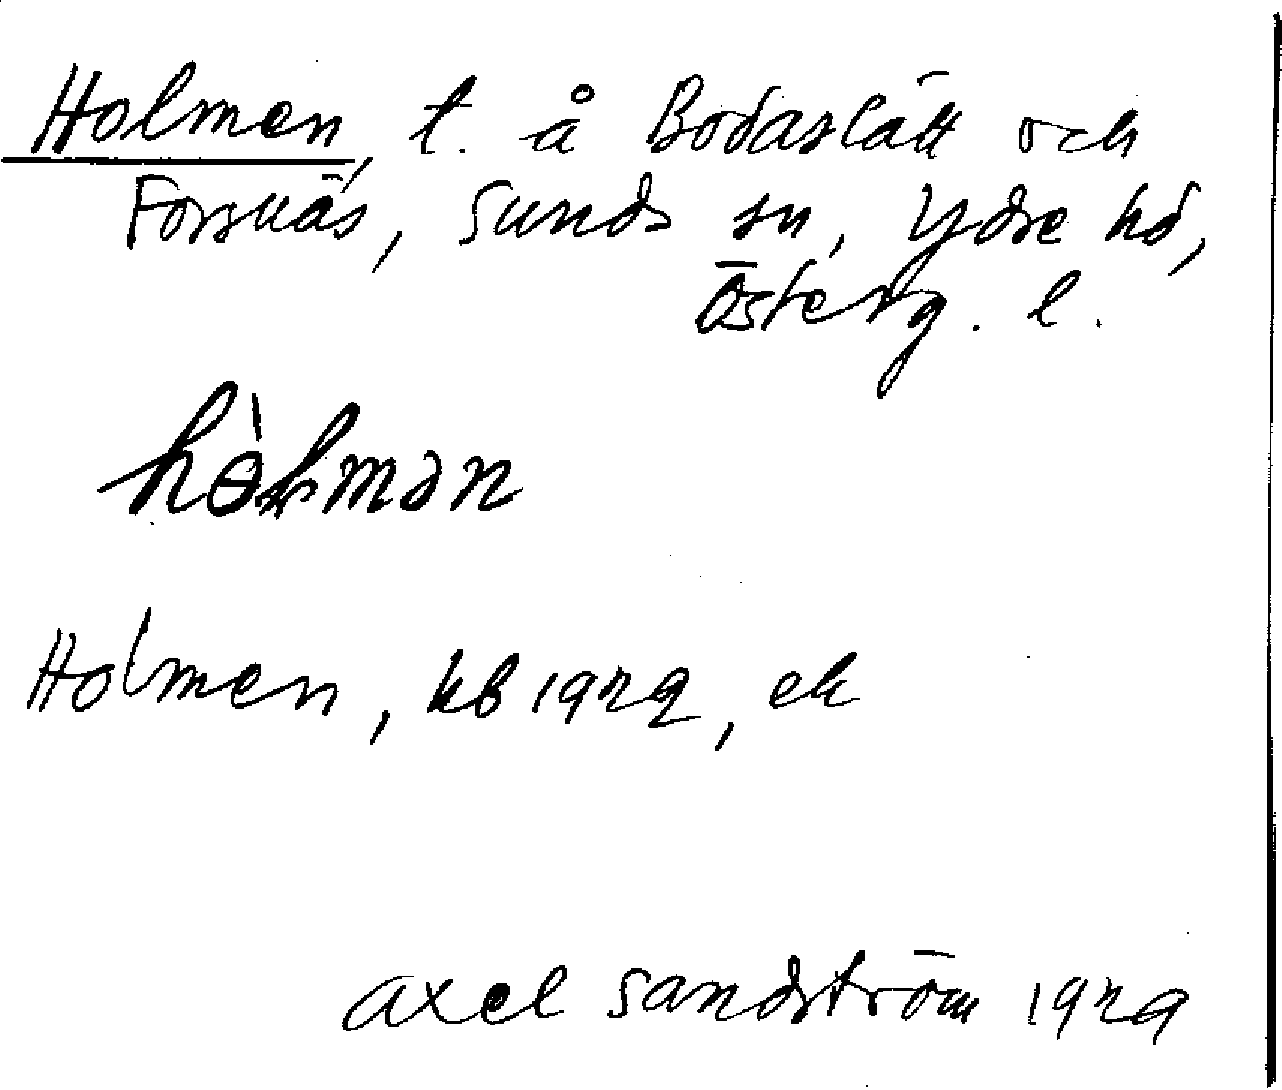 Holmen, t. å Bodaslätt och
Forsnäs, Sunds sn, Ydre hd,
Österg. l.
hòlmən
Holmen, kb 1929, ek
Axel Sandström 1929